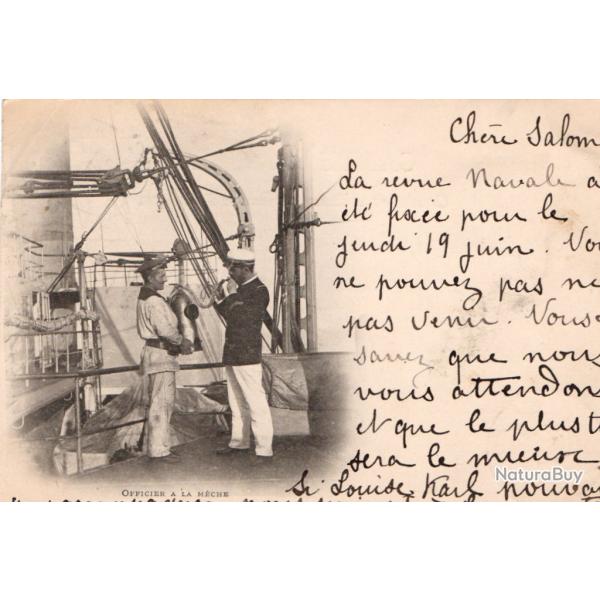 Chère Salom
La revue Navale a
été fixée pour le
jeudi 19 juin. Vou
ne pouvez pas ne
pas venir. Vous
savez que nous
vous attendons
et que le plust
sera le mieux
Si Louise, Karl pouvai
OFFICIER A LA MÈCHE
NaturaBuy